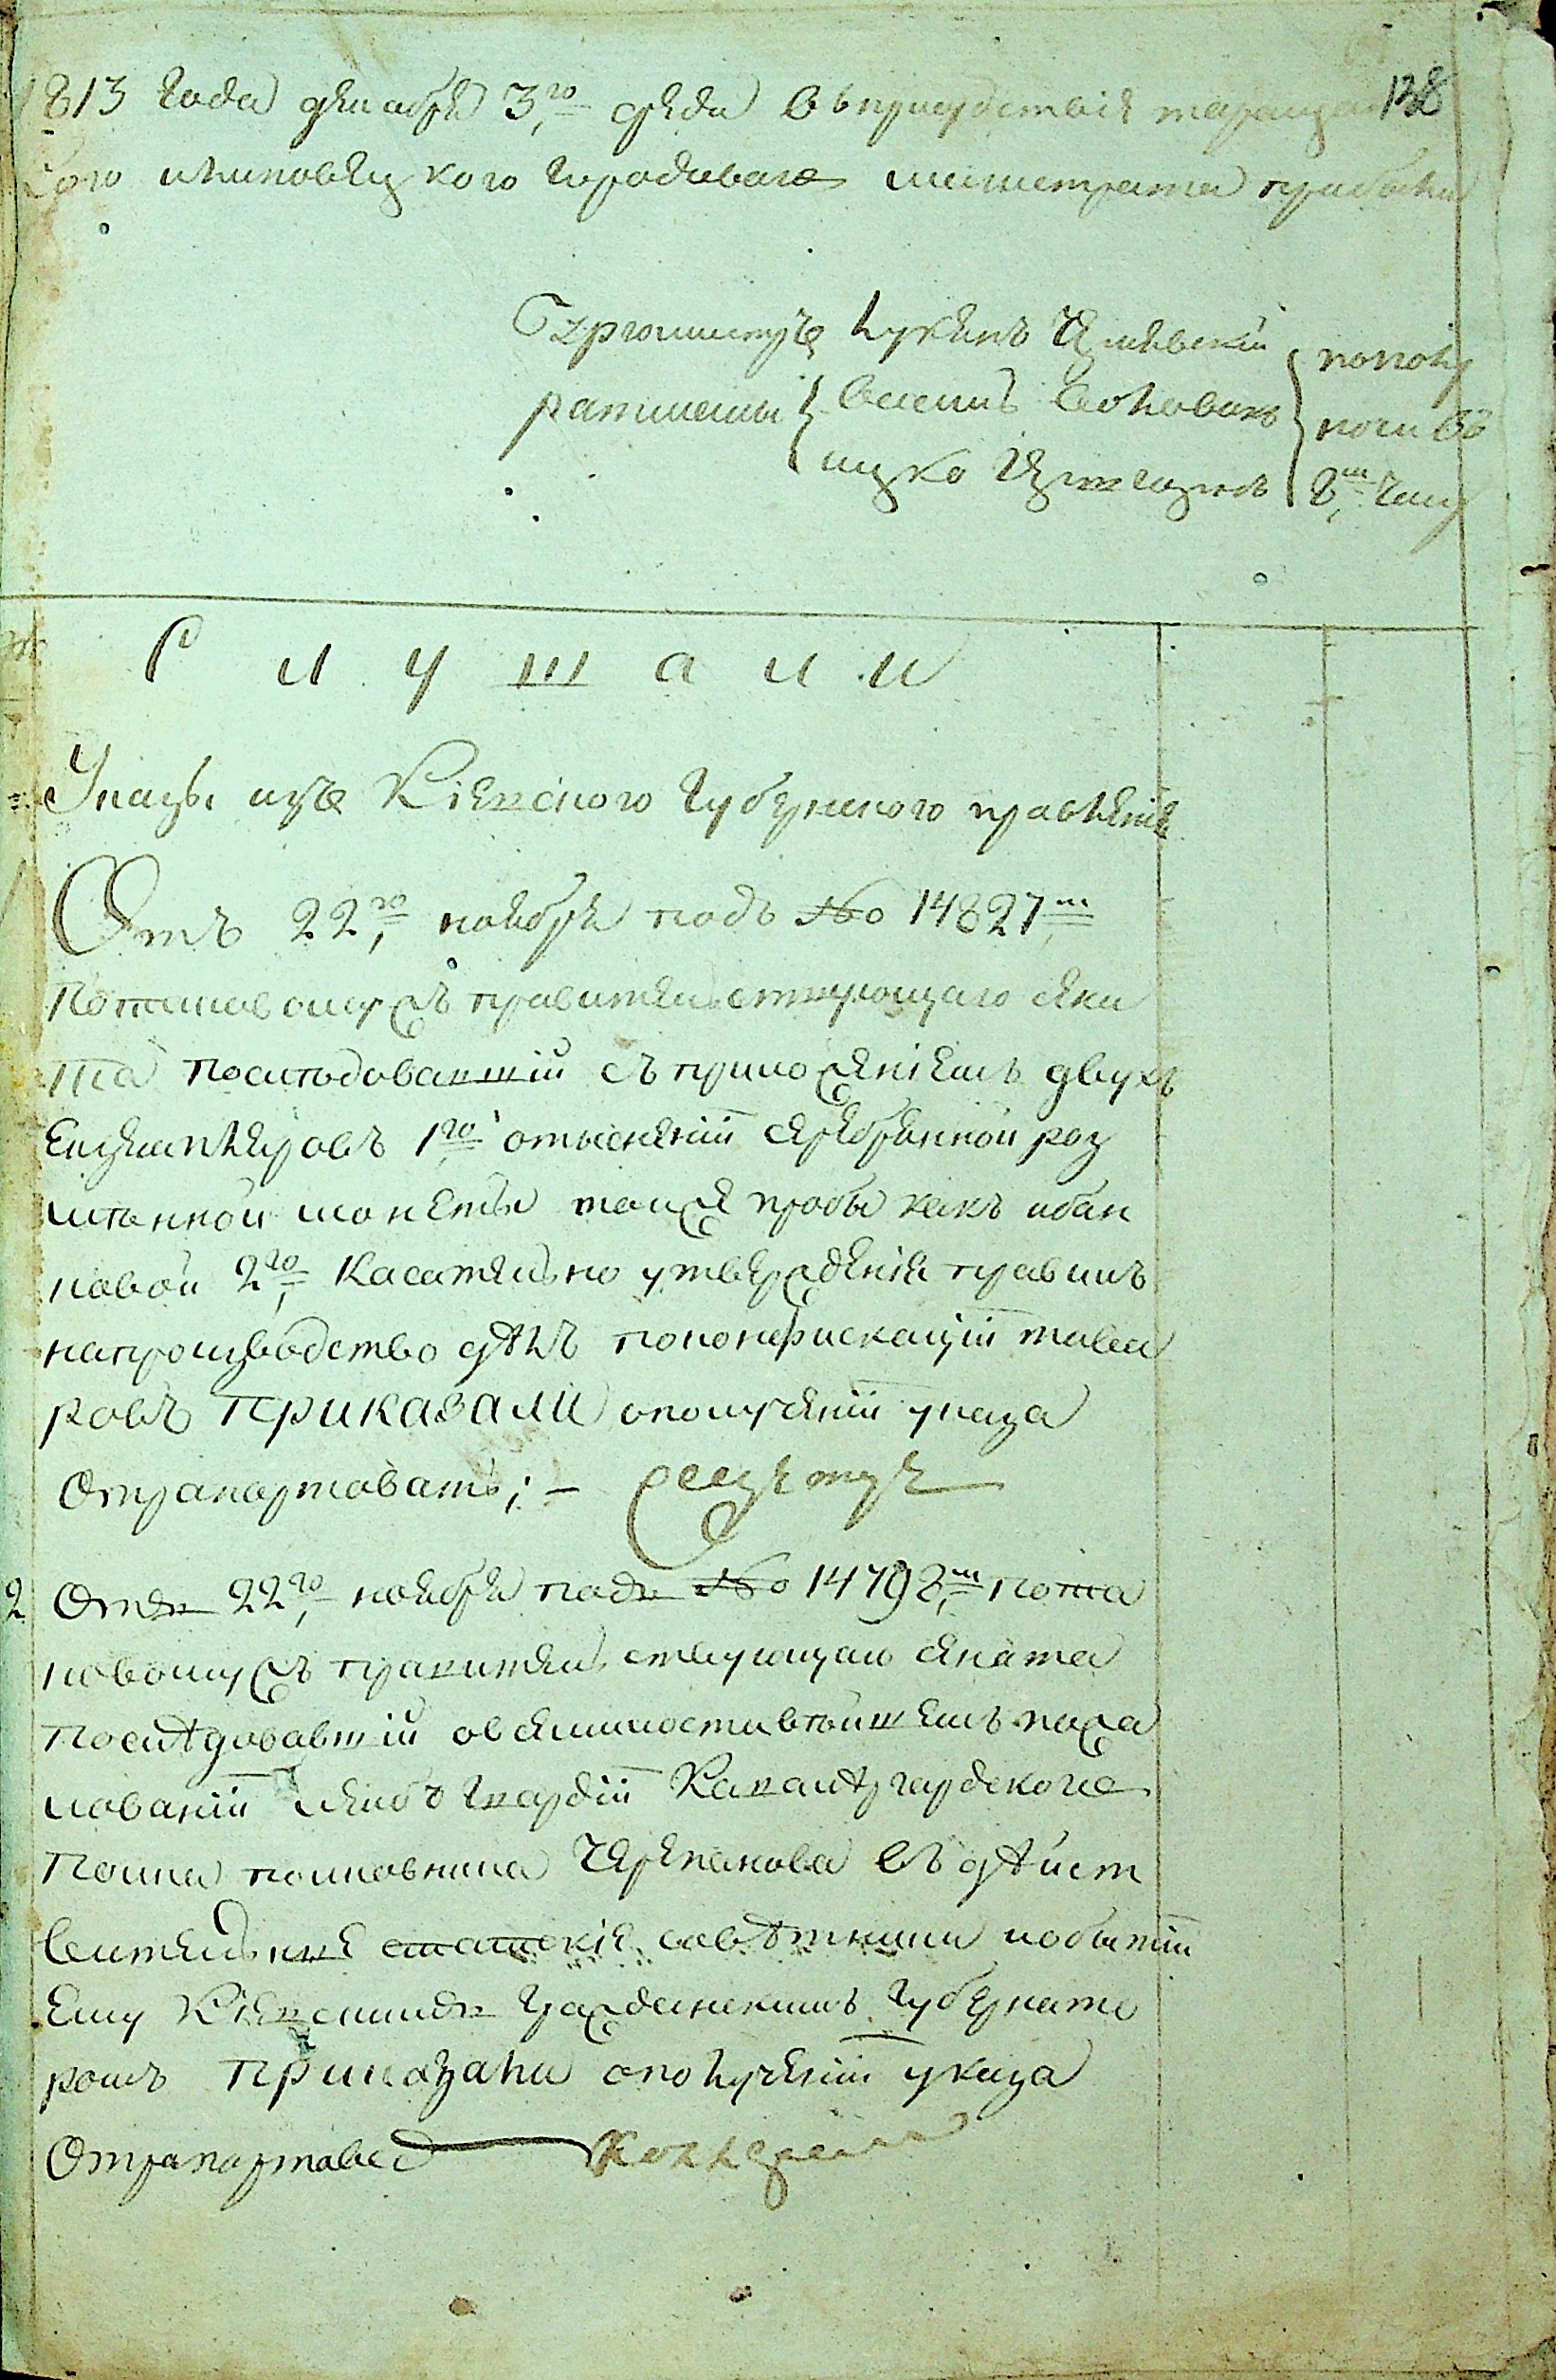 138
1813 года декабря 3,го среда въ присудствія таращан
ского илиповецкого городоваго магистрата прибыли
Бургомистръ Лукянъ
ратманы { василь } пополу
ночи въ
8м часу
Слушали
Указы изъ Кіевского Губернского правленія
Отъ 22,го ноября подъ No 14827,м
потаковомужъ правительствующаго сена
та последовавшій съ приложеніемъ двухъ
Екземпляровъ 1го отысненій серебрянной раз
мѣнной монеты тойже пробы какъ ибан
ковой 2,го касательно утвержденія правилъ
напроизводство дѣлъ поконфискацій това
ровъ приказали ополученій указа
Отрапортовать; —
2 Отъ 22,го ноября подъ No 14798,м пота
ковомужъ правительствующаго сената
послѣдовавшій овсемилостивѣйшемъ пожа
лованій Лейбъ Гвардій Кавалѣргардского
полка полковника Черепанова въ дѣйст
вительные статскіе совѣтники ибытій
Ему Кіевскимъ Гражданскимъ Губернато
ромъ приказали ополученій указа
Отрапортовать